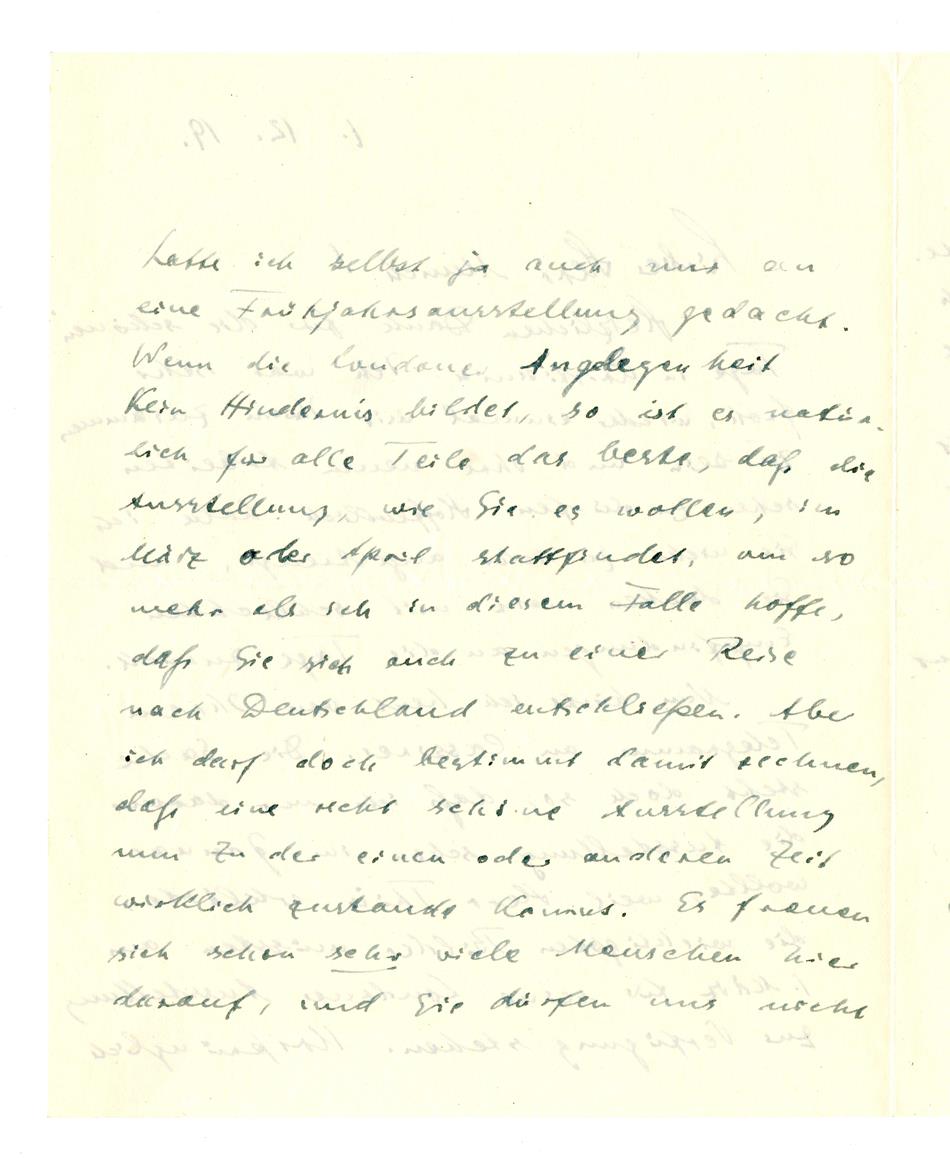 hatte ich selbst ja auch nur an
eine Frühjahrsausstellung gedacht.
Wenn die Londoner Angelegenheit
kein Hindernis bildet, so ist es natür-
lich für alle Teile das beste, daß die
Ausstellung, wie Sie es wollen, im
März oder April stattfindet, um so
mehr als ich in diesem Falle hoffe,
daß Sie sich auch zu einer Reise
nach Deutschland entschließen. Aber
ich darf doch bestimmt damit rechnen,
daß eine recht schöne Ausstellung
nun zu der einen oder anderen Zeit
wirklich zustande kommt. Es freuen
sich schon sehr viele Menschen hier
darauf, und Sie dürfen uns nicht